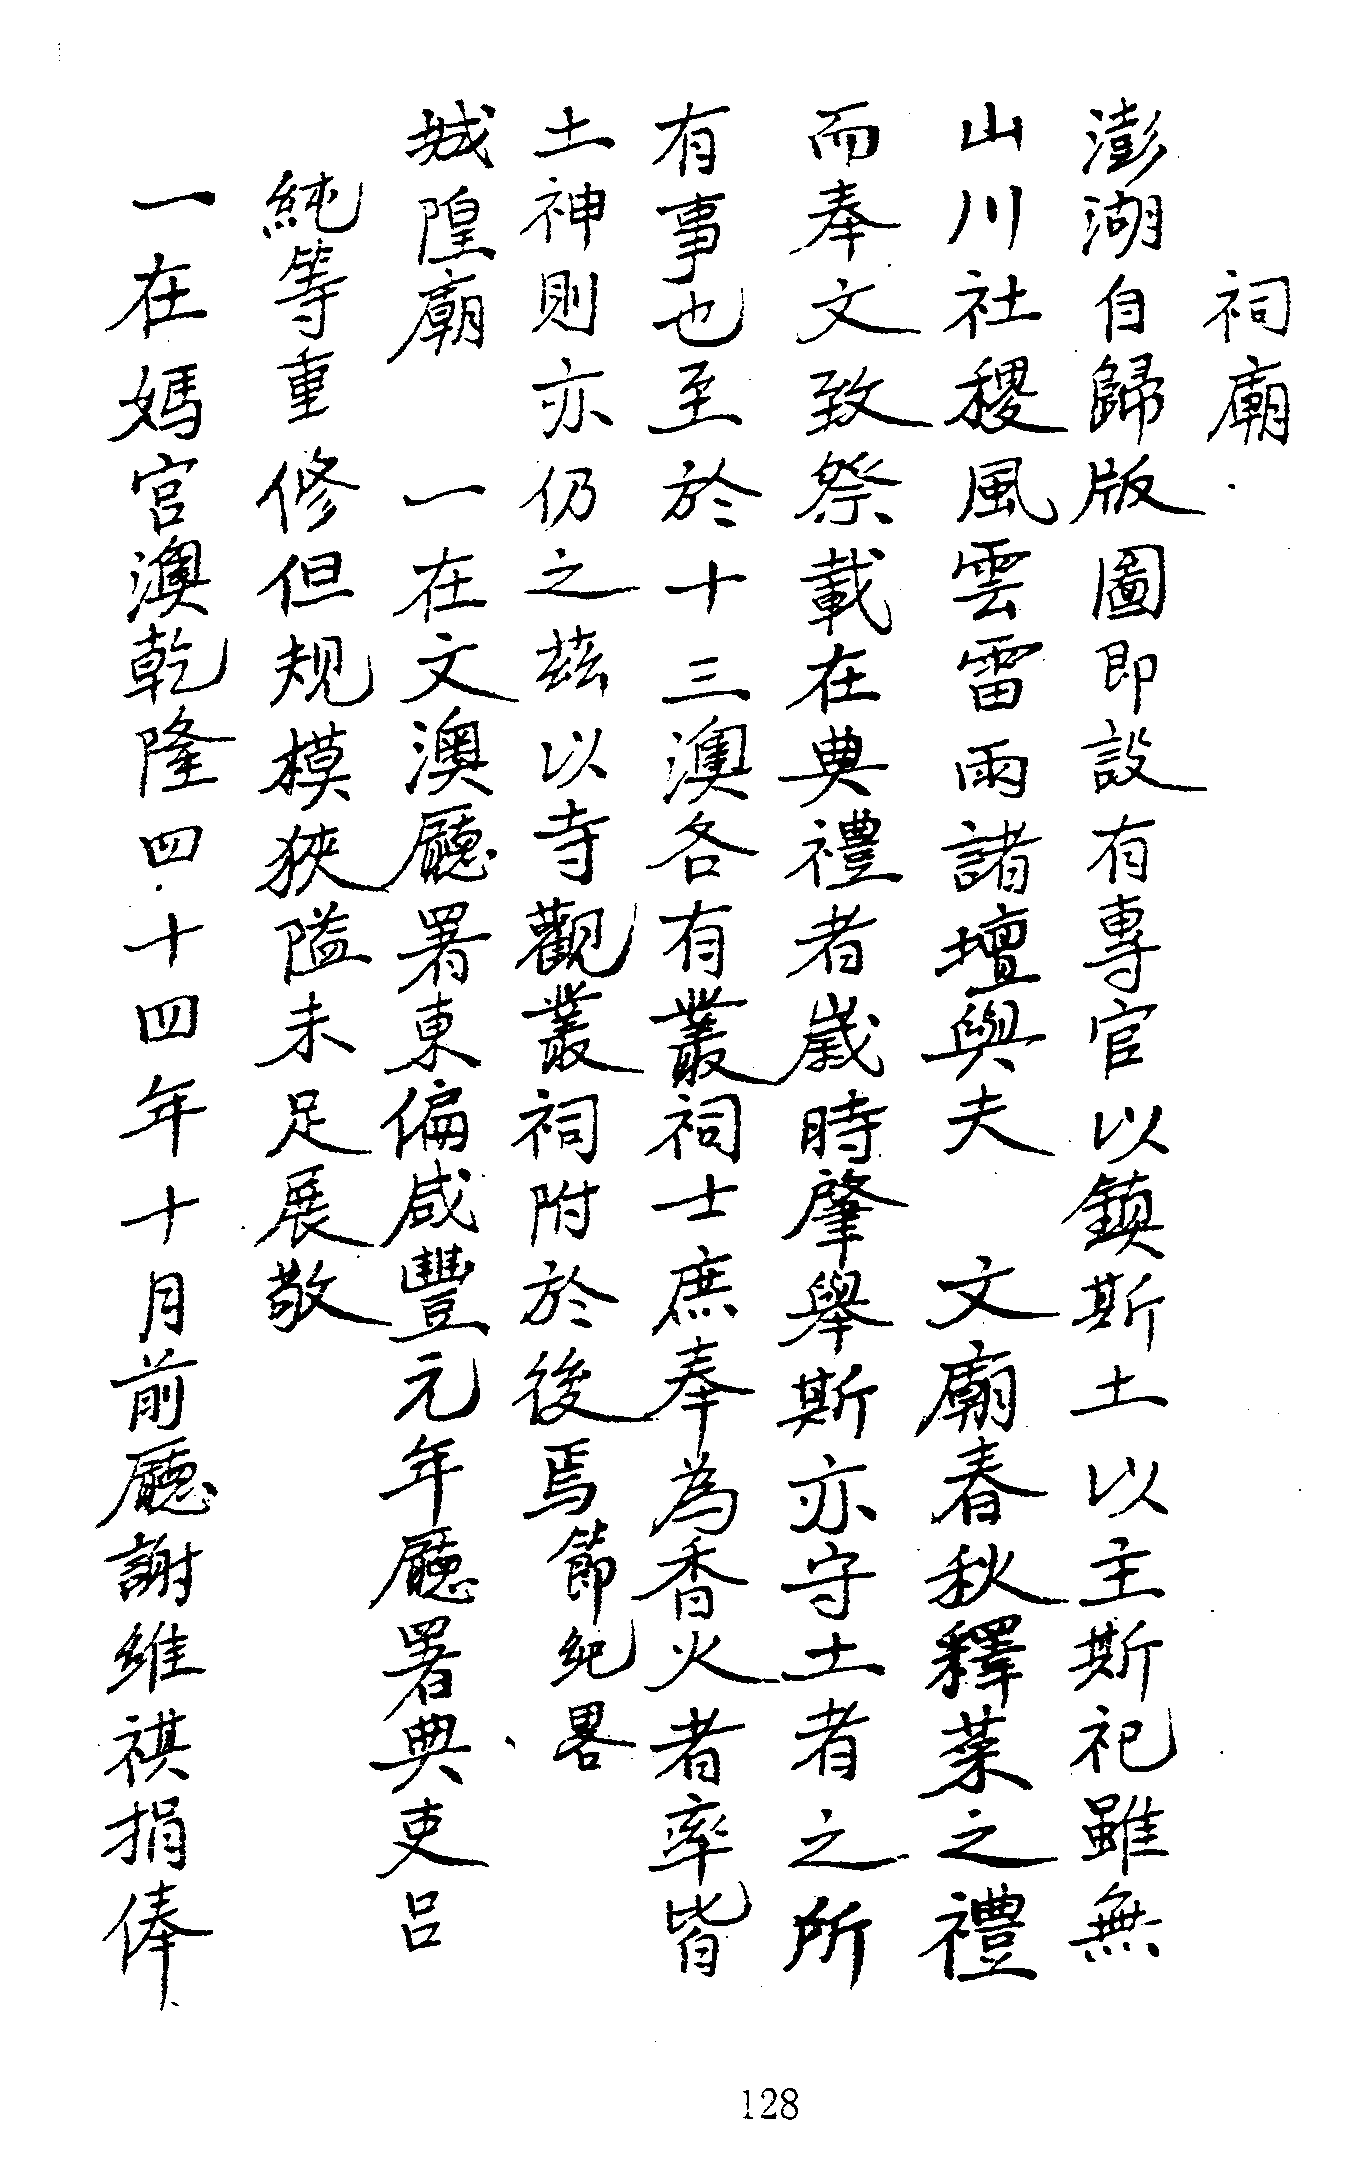 祠廟
澎湖自歸版圖即設有專官以鎮斯土以主斯祀雖無
山川社稷風雲雷雨諸壇與夫　文廟春秋釋菜之禮
而奉文致祭載在典禮者歲時肇舉斯亦守土者之所
有事也至於十三澳各有叢祠士庶奉為香火者率皆
土神則亦仍之茲以寺觀叢祠附於後焉節紀畧
城隍廟　一在文澳廳署東偏咸豐元年廳署典吏呂
純等重修但規模狹隘未足展敬
一在媽宮澳乾隆四十四年十月前廳謝維祺捐俸
128